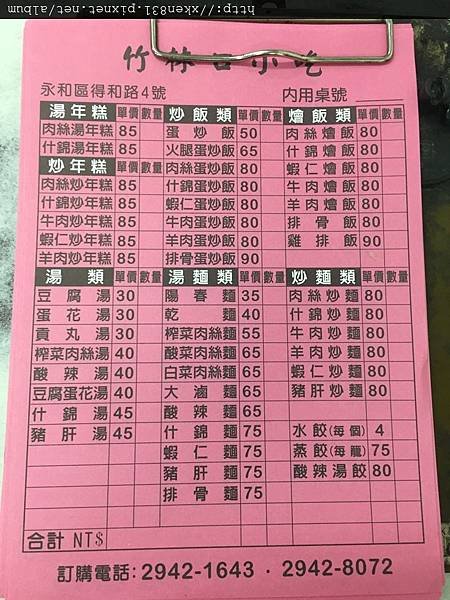 http://xken831.pixnet.net/album
竹林口小吃
永和區得和路4號 內用桌號
湯年糕 單價 數量
肉絲湯年糕 85
什錦湯年糕 85
炒年糕 單價 數量
肉絲炒年糕 85
什錦炒年糕 85
牛肉炒年糕 85
蝦仁炒年糕 85
羊肉炒年糕 85
湯類 單價 數量
豆腐湯 30
蛋花湯 30
貢丸湯 30
榨菜肉絲湯 40
酸辣湯 40
豆腐蛋花湯 40
什錦湯 45
豬肝湯 45
炒飯類 單價 數量
蛋炒飯 50
火腿蛋炒飯 65
肉絲蛋炒飯 80
什錦蛋炒飯 80
蝦仁蛋炒飯 80
牛肉蛋炒飯 80
羊肉蛋炒飯 80
排骨蛋炒飯 90
湯麵類 單價 數量
陽春麵 35
乾麵 40
榨菜肉絲麵 55
酸菜肉絲麵 65
白菜肉絲麵 65
大滷麵 65
酸辣麵 65
什錦麵 75
蝦仁麵 75
豬肝麵 75
排骨麵 75
燴飯類 單價 數量
肉絲燴飯 80
什錦燴飯 80
蝦仁燴飯 80
牛肉燴飯 80
羊肉燴飯 80
排骨飯 80
雞排飯 90
炒麵類 單價 數量
肉絲炒麵 80
什錦炒麵 80
牛肉炒麵 80
羊肉炒麵 80
蝦仁炒麵 80
豬肝炒麵 80
水餃(每個) 4
蒸餃(每籠) 75
酸辣湯餃 80
合計 NT$
訂購電話:2942-1643・2942-8072